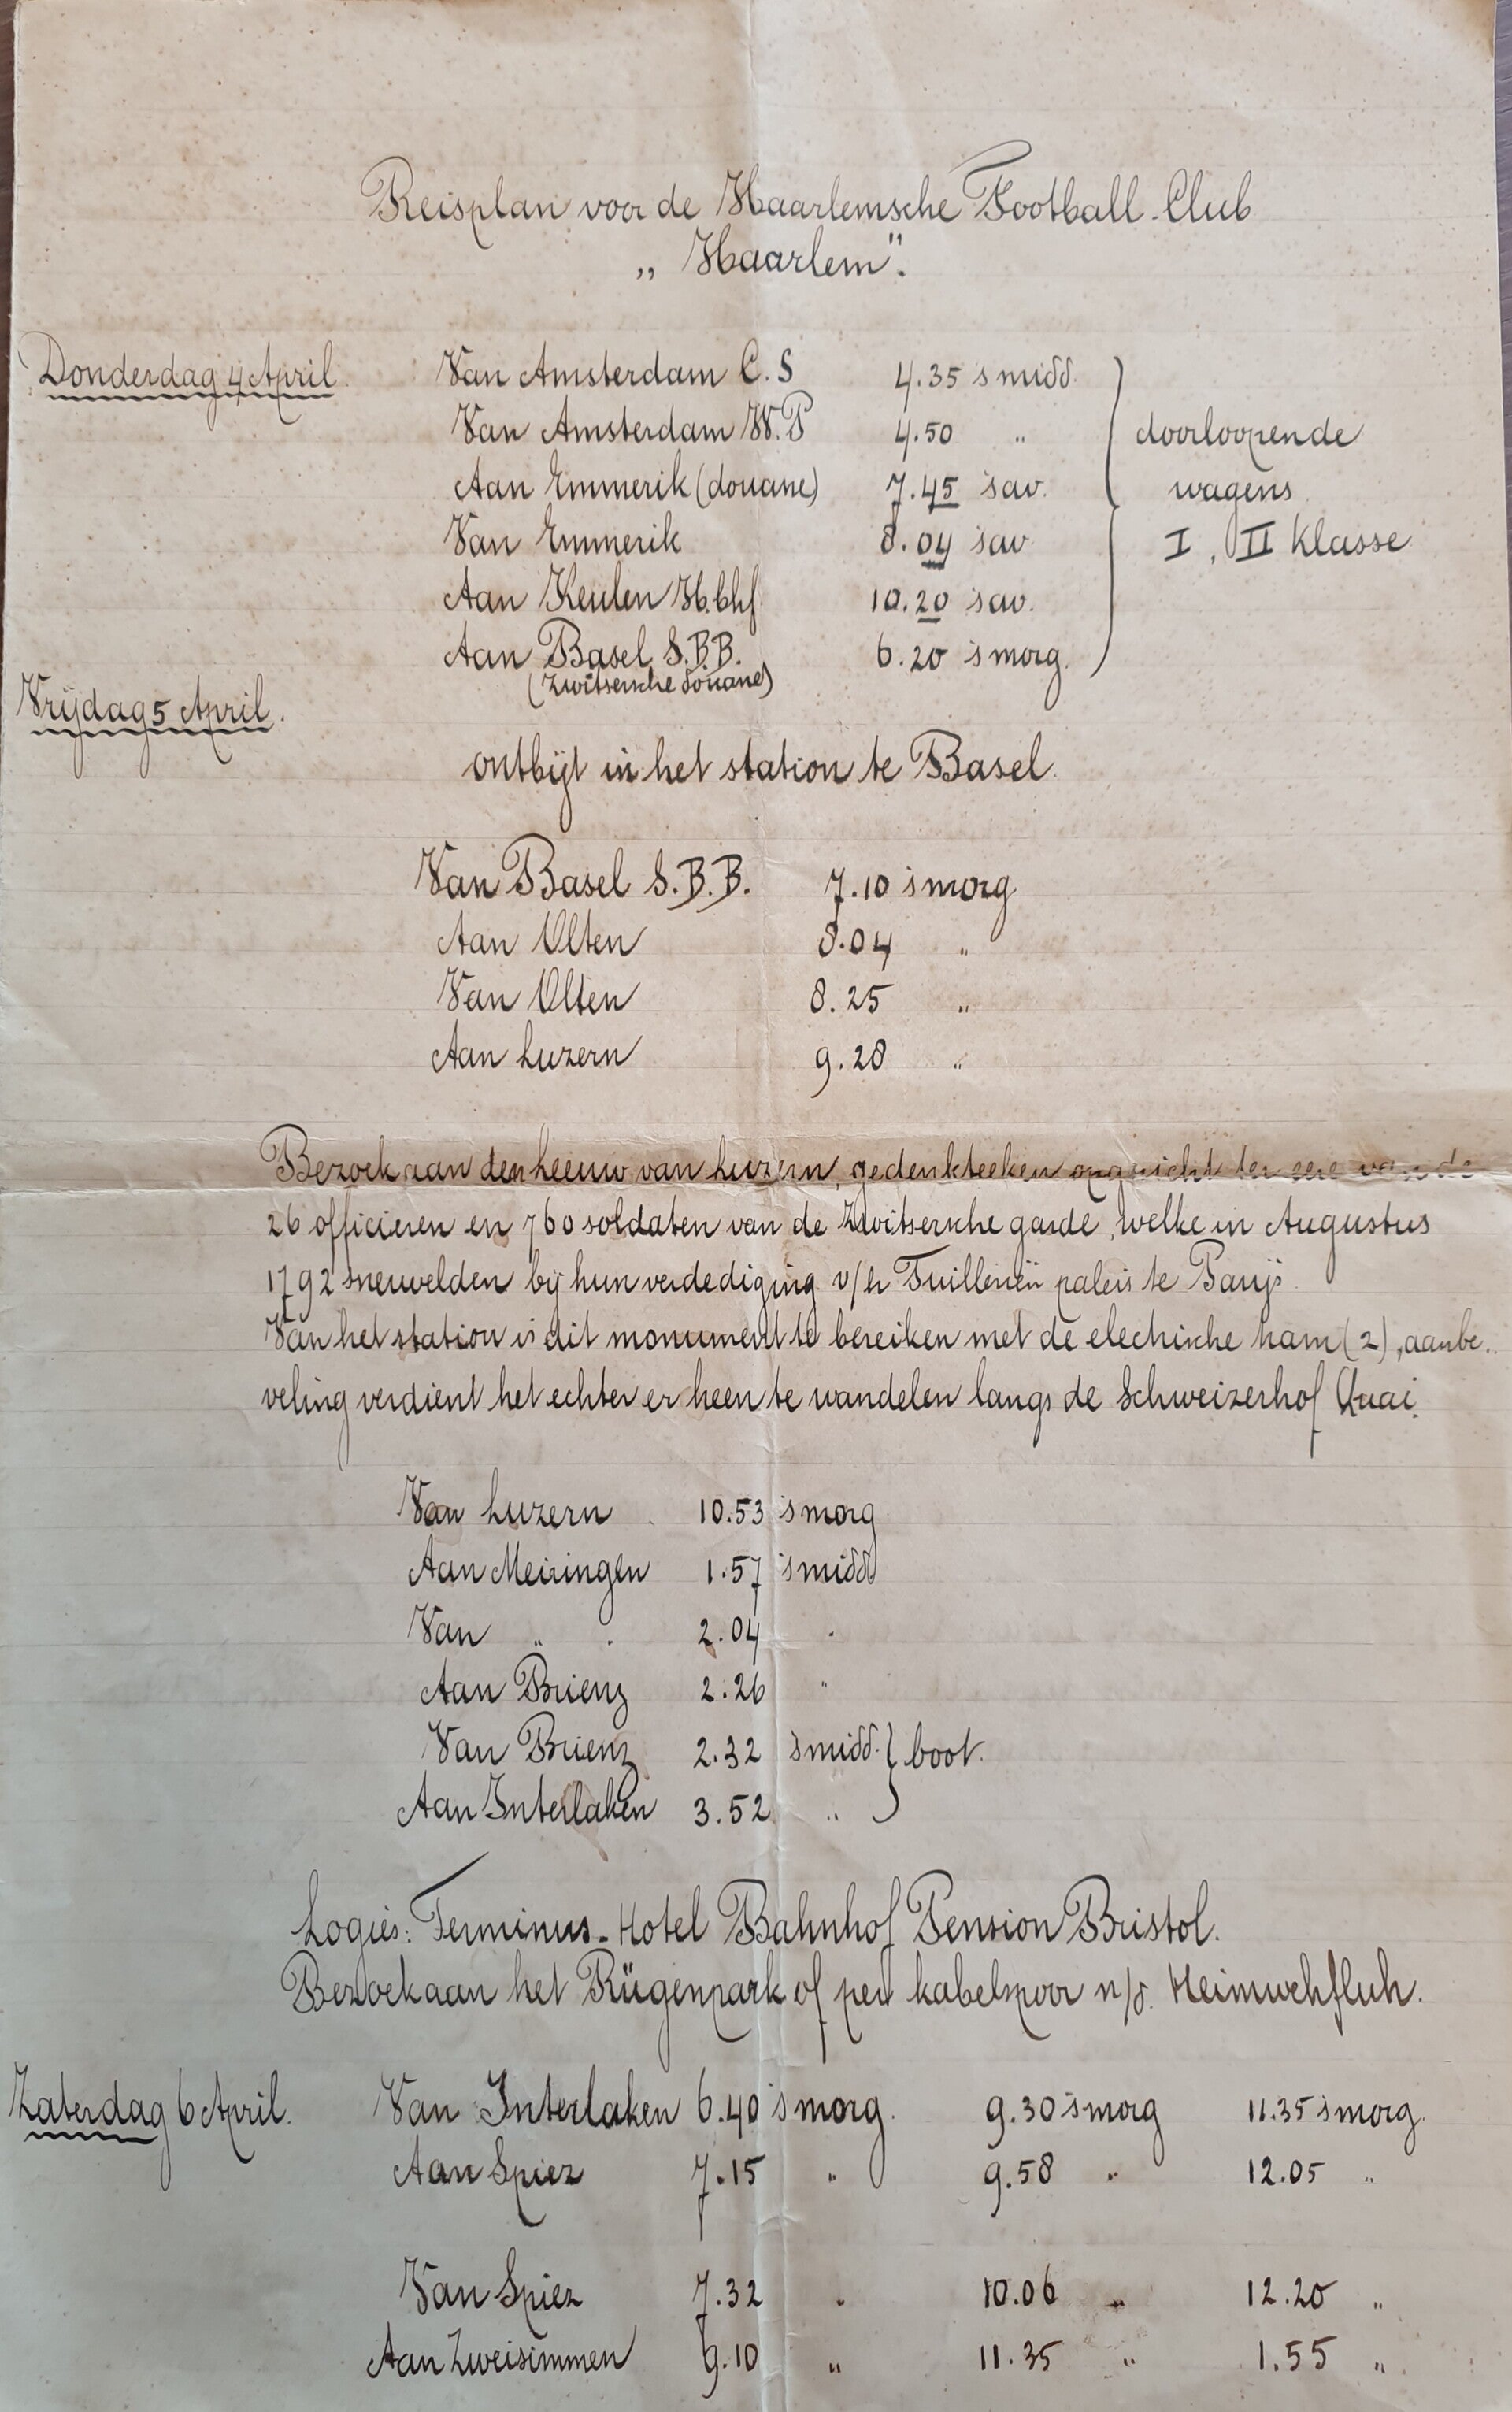 Reisplan voor de Haarlemsche Football-Club
„ Haarlem".
Donderdag 4 April. Van Amsterdam C.S 4.35 's midd.
Van Amsterdam W.P 4.50 " doorloopende
Aan Emmerik (douane) 7.45 's av. wagens
Van Emmerik 8.04 's av I, II Klasse
Aan Keulen H.bhf 10.20 's av.
Aan Basel S.B.B. 6.20 's morg.
(Zwitsersche douane)
Vrijdag 5 April.
ontbijt in het station te Basel.
Van Basel S.B.B. 7.10 's morg
Aan Olten 8.04 "
Van Olten 8.25 "
Aan Luzern 9.28 "
Bezoek aan den Leeuw van Luzern, gedenkteeken opgericht ter eere van de
26 officieren en 760 soldaten van de Zwitsersche garde, welke in Augustus
1792 sneuvelden bij hun verdediging v/h Tuillerieën paleis te Parijs.
Van het station is dit monument te bereiken met de electrische tram (2), aanbe..
veling verdient het echter er heen te wandelen langs de Schweizerhof Quai.
Van Luzern 10.53 's morg
Aan Meiringen 1.57 's midd
Van " 2.04 "
Aan Brienz 2.26 "
Van Brienz 2.32 's midd. } boot.
Aan Interlaken 3.52 "
Logies: Terminus-Hotel Bahnhof Pension Bristol.
Bezoek aan het Rügenpark of per kabelspoor n/d. Heimwehfluh.
Zaterdag 6 April. Van Interlaken 6.40 's morg. 9.30 's morg 11.35 's morg.
Aan Spiez 7.15 " 9.58 " 12.05 "
Van Spiez 7.32 " 10.06 " 12.20 "
Aan Zweisimmen 9.10 " 11.35 " 1.55 "